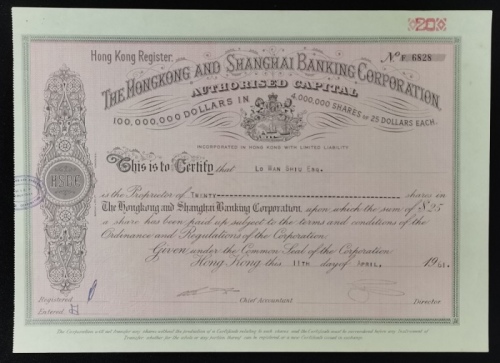 20
Hong Kong Register.
No F 6828
THE HONGKONG AND SHANGHAI BANKING CORPORATION
AUTHORISED CAPITAL
100,000,000 DOLLARS IN 4,000,000 SHARES OF 25 DOLLARS EACH.
INCORPORATED IN HONG KONG WITH LIMITED LIABILITY
This is to Certify that Lo Man Shiu Esq.
is the Proprietor of shares in
The Hongkong and Shanghai Banking Corporation, upon which the sum of $25
a share has been paid up subject to the terms and conditions of the
Ordinance and Regulations of the Corporation.
Given under the Common Seal of the Corporation
Hong Kong this 11TH day of APRIL, 1961.
Registered
Entered
Chief Accountant
Director
The Corporation will not transfer any shares without the production of a Certificate relating to such shares, and the Certificate must be surrendered before any
Transfer whether for the whole or any portion thereof can be registered or a new Certificate issued in exchange.